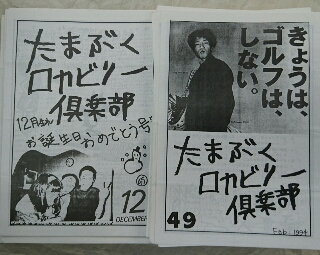 たまぶく
ロカビリー
倶楽部
12月生まれ
お誕生日おめでとう号
12
DECEMBER
きょうは、
ゴルフは、
しない。
たまぶく
ロカビリー
倶楽部
49
Feb. 1994